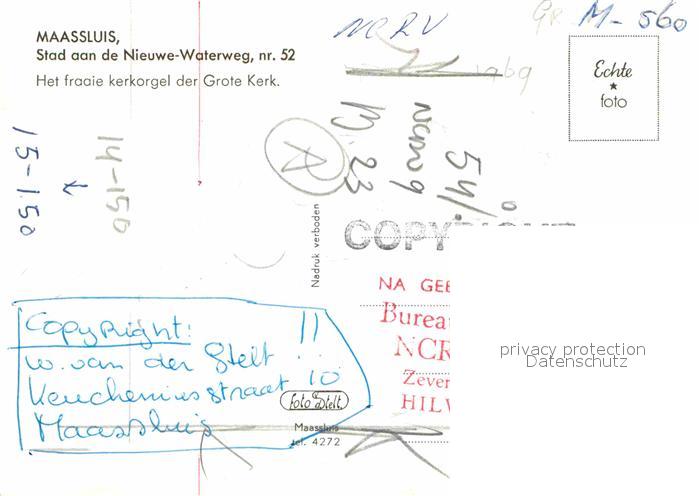 NCRV
Gr. M-560
MAASSLUIS,
Stad aan de Nieuwe-Waterweg, nr. 52
Het fraaie kerkorgel der Grote Kerk.
Echte
foto
15-1.50
14-150
R
B. 23
54%
Nadruk verboden
COPYRIGHT
NA GEB
Bureau
NCR
Zever
HILV
Copyright: !!
w. van der Stelt
Keucheniusstraat 10
Maassluis
foto Stelt.
Maassluis
tel. 4272
privacy protection
Datenschutz